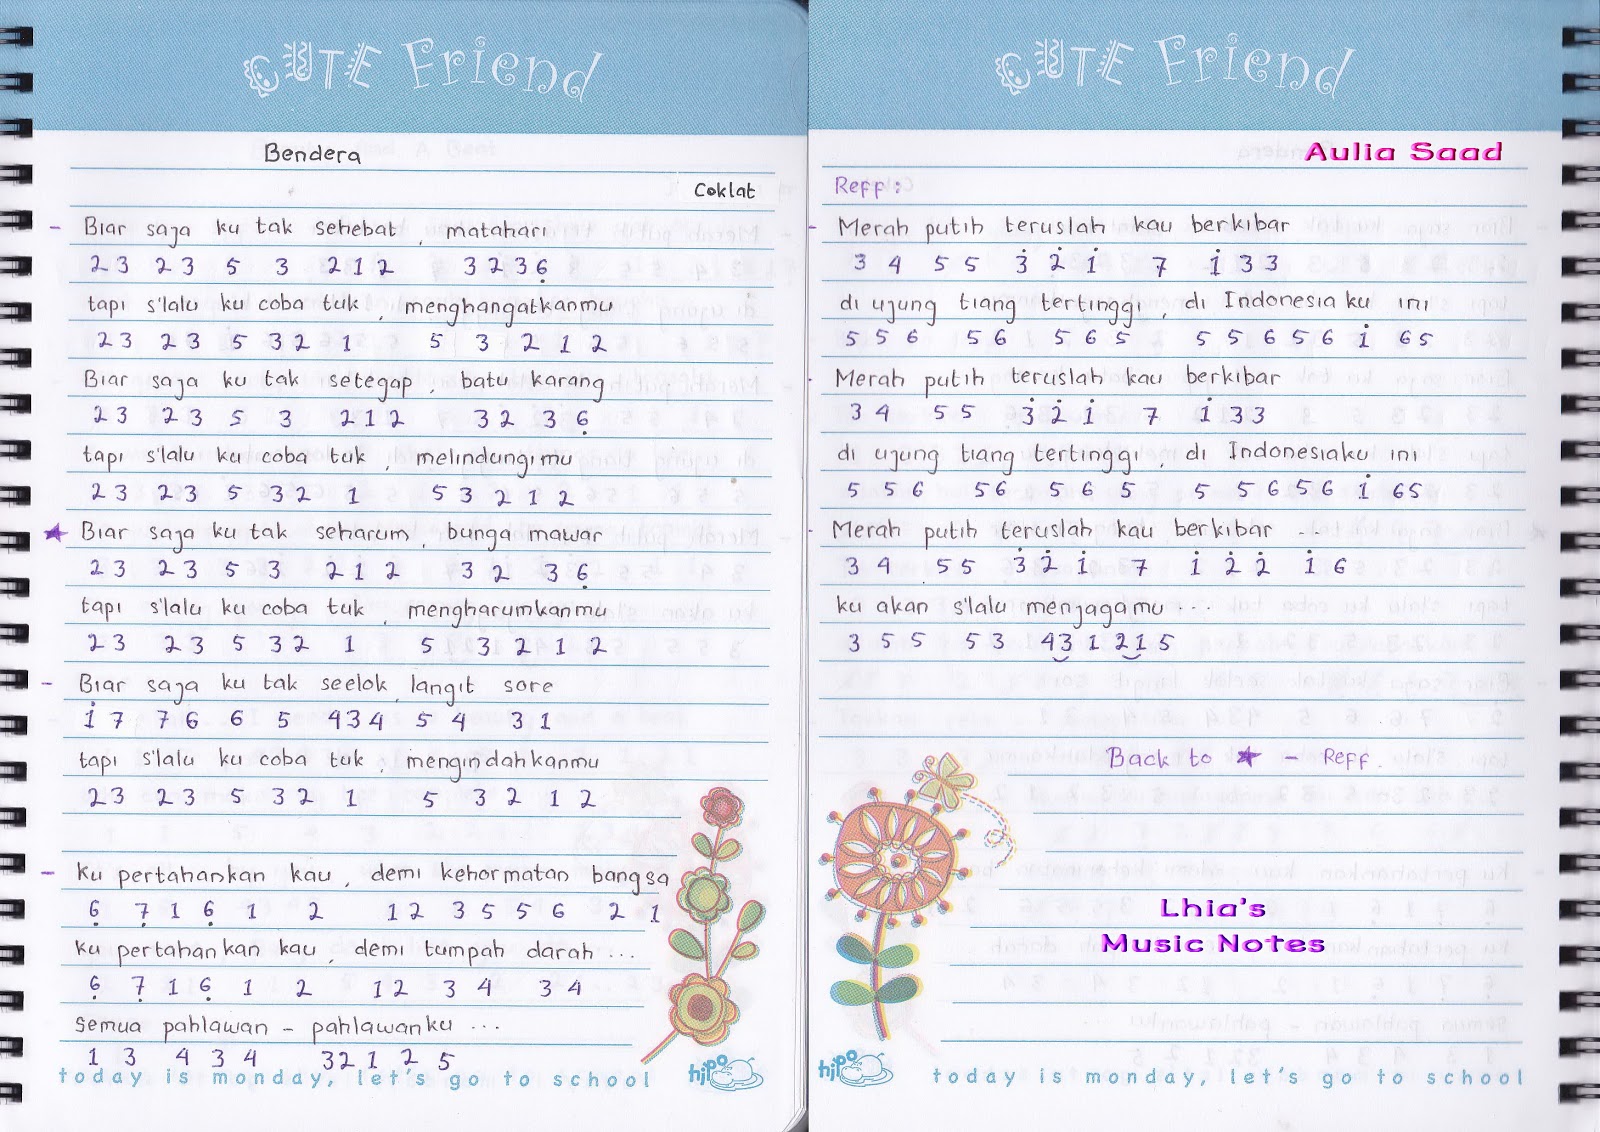 CUTE Friend
Bendera
Coklat
- Biar saja ku tak sehebat, matahari
2 3 2 3 5 3 2 1 2 3 2 3 6̣
tapi s'lalu ku coba tuk, menghangatkanmu
2 3 2 3 5 3 2 1 5 3 2 1 2
Biar saja ku tak setegap, batu karang
2 3 2 3 5 3 2 1 2 3 2 3 6̣
tapi s'lalu ku coba tuk, melindungimu
2 3 2 3 5 3 2 1 5 3 2 1 2
★ Biar saja ku tak seharum, bunga mawar
2 3 2 3 5 3 2 1 2 3 2 3 6̣
tapi s'lalu ku coba tuk, mengharumkanmu
2 3 2 3 5 3 2 1 5 3 2 1 2
- Biar saja ku tak seelok, langit sore
1̇ 7 7 6 6 5 4 3 4 5 4 3 1
tapi s'lalu ku coba tuk, mengindahkanmu
2 3 2 3 5 3 2 1 5 3 2 1 2
- Ku pertahankan kau, demi kehormatan bangsa
6̣ 7̣ 1 6̣ 1 2 1 2 3 5 5 6 2 1
Ku pertahankan kau, demi tumpah darah ...
6̣ 7̣ 1 6̣ 1 2 1 2 3 4 3 4
Semua pahlawan - pahlawanku ...
1 3 4 3 4 3 2 1 2 5
today is monday, let's go to school
hipo
CUTE Friend
Aulia Saad
Reff :
- Merah putih teruslah kau berkibar
3 4 5 5 3̇ 2̇ 1̇ 7 1̇ 3 3
di ujung tiang tertinggi, di Indonesia ku ini
5 5 6 5 6 5 6 5 5 5 6 5 6 1̇ 6 5
Merah putih teruslah kau berkibar
3 4 5 5 3̇ 2̇ 1̇ 7 1̇ 3 3
di ujung tiang tertinggi, di Indonesiaku ini
5 5 6 5 6 5 6 5 5 5 6 5 6 1̇ 6 5
Merah putih teruslah kau berkibar -
3 4 5 5 3̇ 2̇ 1̇ 7 1̇ 2̇ 2̇ 1̇ 6
ku akan s'lalu menjagamu ...
3 5 5 5 3 4 3 1 2 1 5
Back to ★ - Reff.
Lhia's
Music Notes
hipo
today is monday, let's go to school